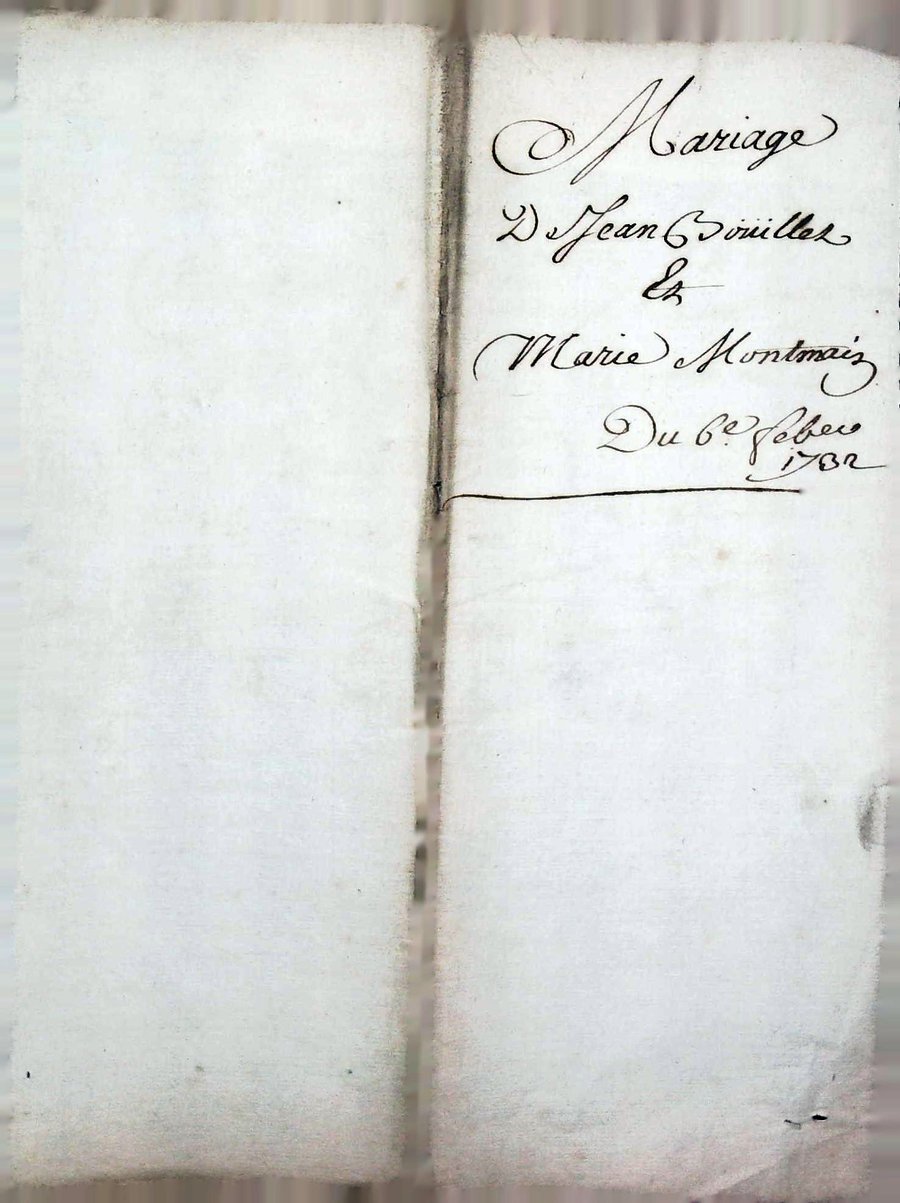 Mariage
De Jean Boüillet
Et
Marie Montmain
Du 6e. feber
1732